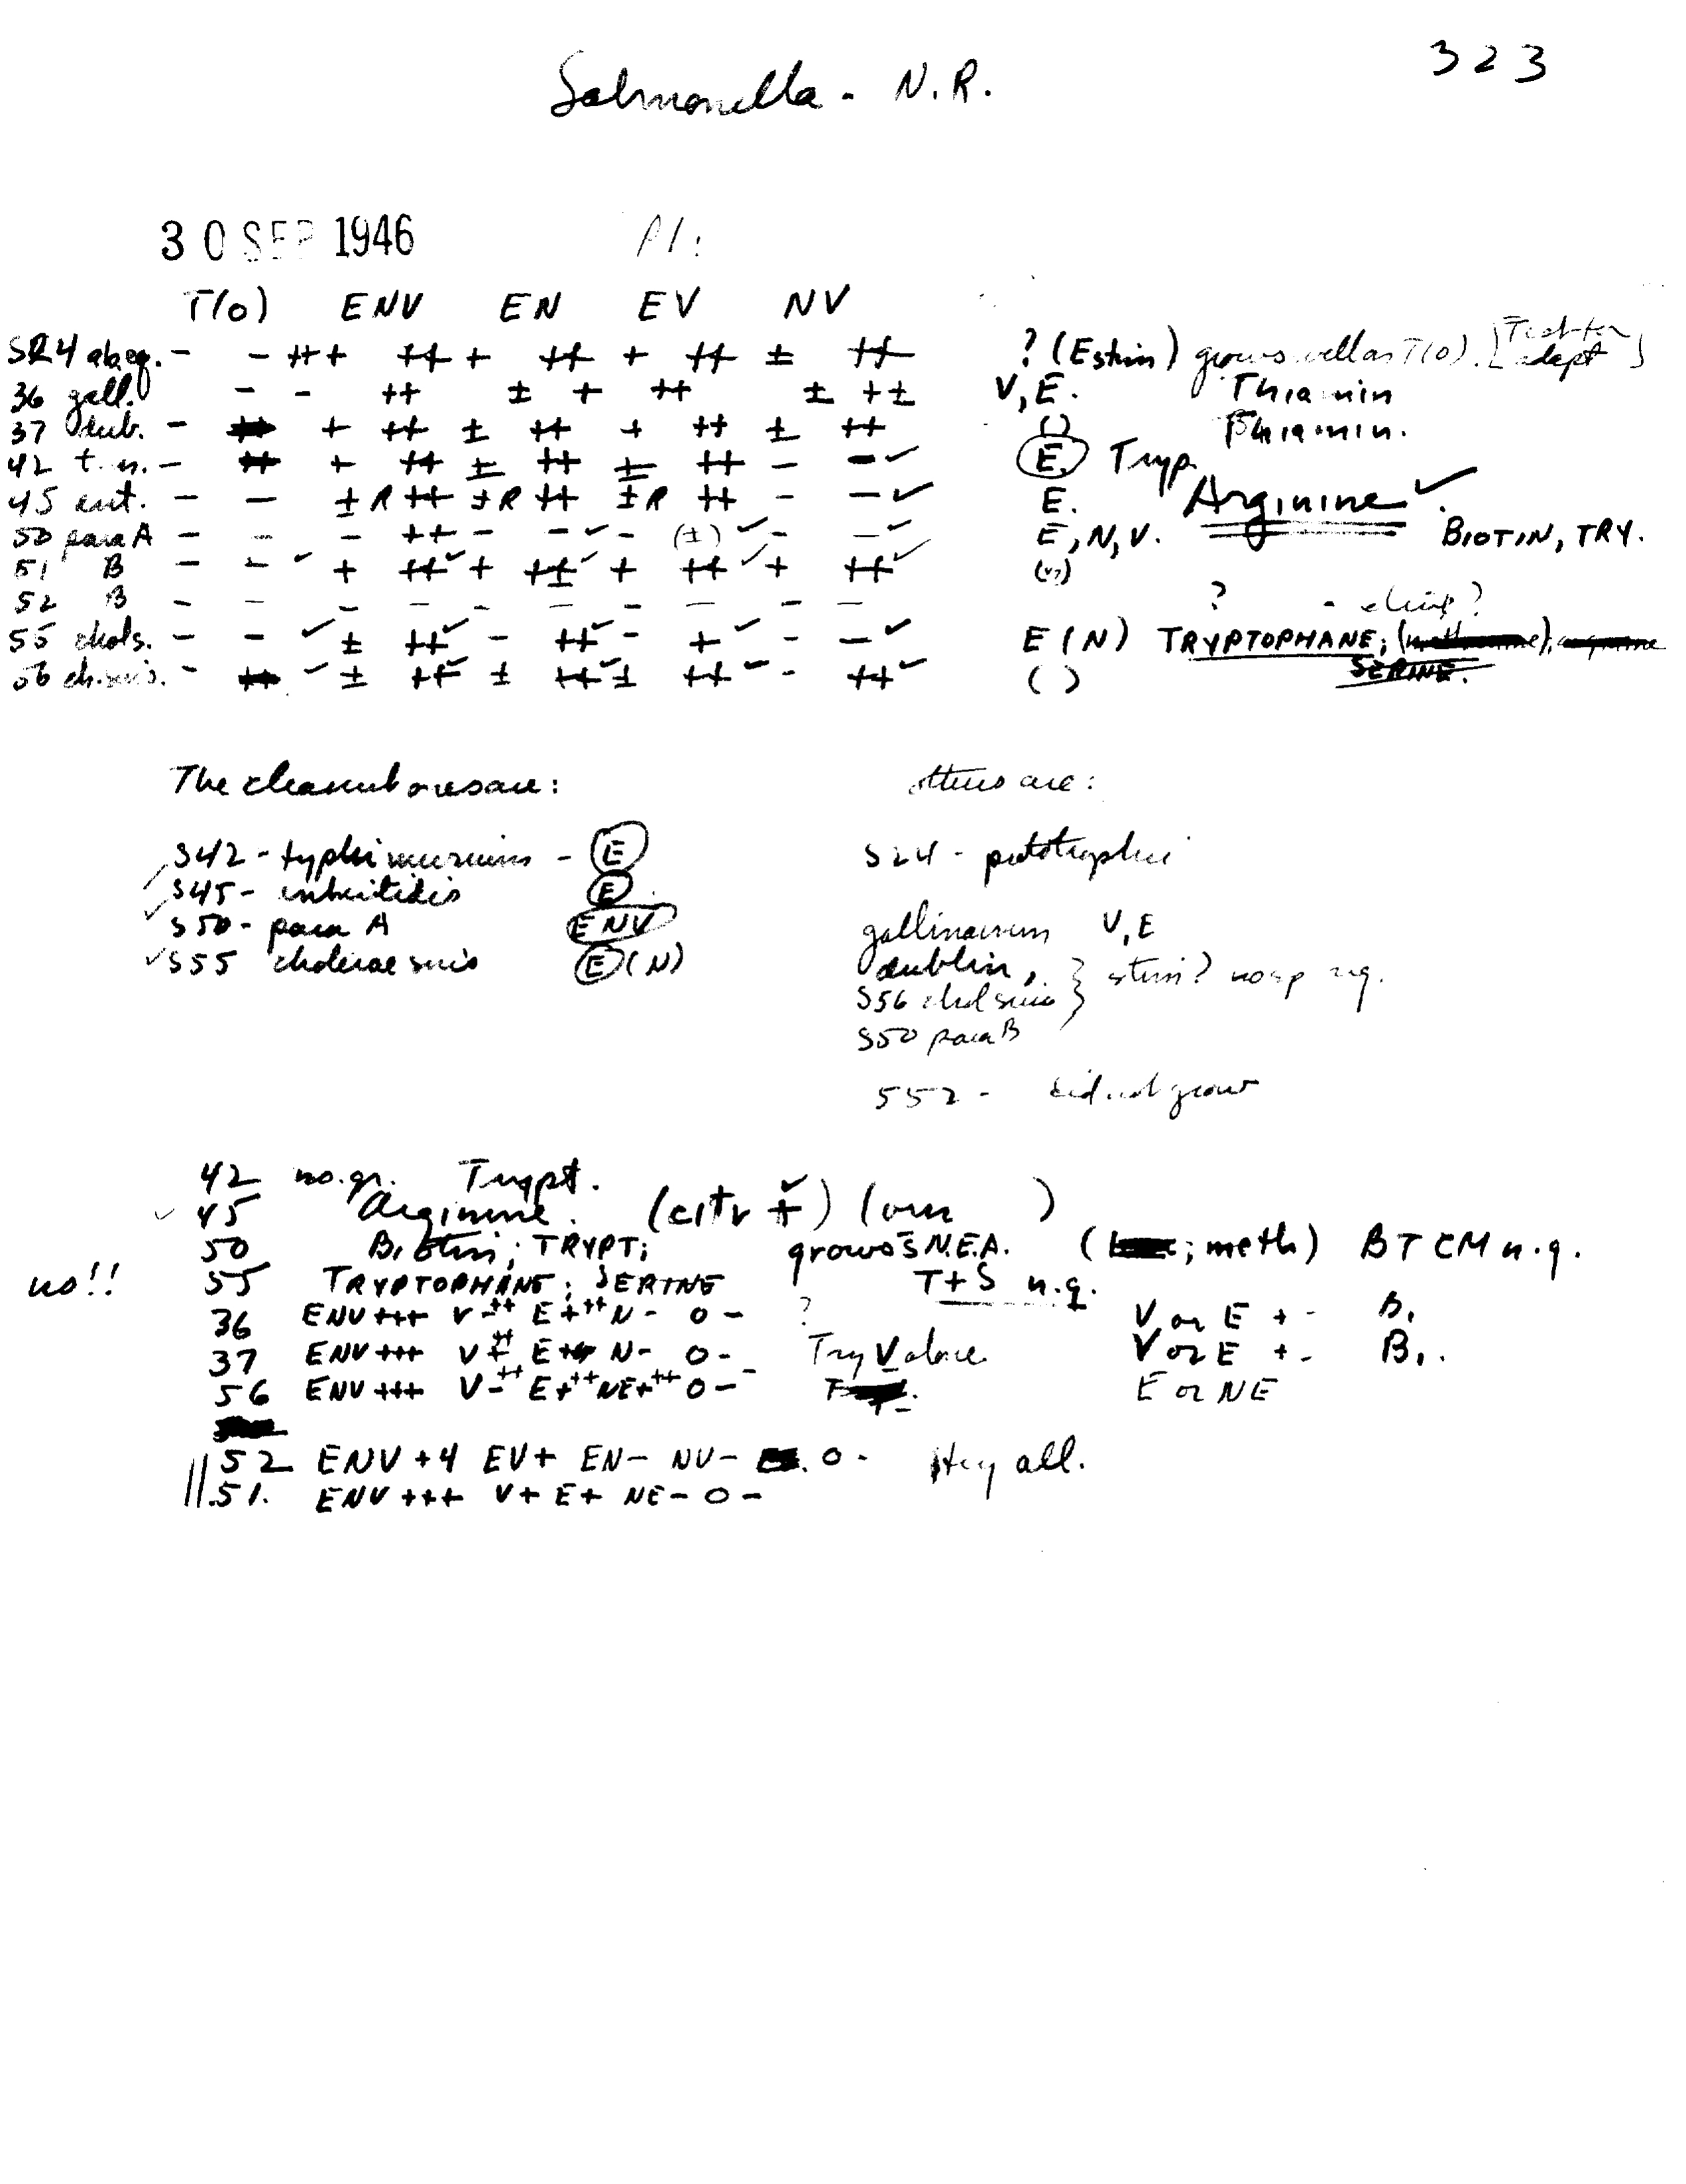 323
Salmonella - N.R.
30 SEP 1946
T(0) ENV EN EV NV
SR4 ab.eq. - - +++ ++ + ++ + ++ ± ++ ? (Estim) grows well as T(0). [Test for adept]
36 gall. - - ++ ± + ++ ± +± V, E. Thiamin
37 dub. - + ++ ± ++ + ++ ± ++ () Thiamin.
42 t.m. - + ++ ± ++ ± ++ - - ✓ E. Tryp.
45 ent. - - ± R ++ ± R ++ ± R ++ - - ✓ E. Arginine ✓
50 para A - - - ++ - - ✓ - (±) ✓ - - ✓ E, N, V. BIOTIN, TRY.
51 B - - ✓ + ++ ✓ + ++ ✓ + ++ ✓ + ++ ✓
52 B - - - - - - - - - - ?
55 chols. - - ✓ ± ++ ✓ - ++ ✓ - + ✓ - - ✓ E (N) TRYPTOPHANE;
SERINE.
56 ch.suis. - ✓ ± ++ ✓ ± ++ ✓ ± ++ ✓ - ++ ✓ ( )
The clearcut ones are:
S42 - typhimurium - E
✓ S45 - enteritidis E
✓ S50 - para A ENV
✓ S55 cholerae suis E (N)
others are:
S24 - prototrophic
gallinarum V, E
dublin, } stim? no sp rq.
S56 chol suis
S50 para B
S52 - did not grow
42 no.gr. Trypt.
✓ 45 Arginine. (citr + ✓) (orn )
50 Biotin; TRYPT; grows s̄ N.E.A. ( ; meth) BTCM n.g.
no!! 55 TRYPTOPHANE; SERINE T+S n.g.
36 ENV +++ V - ++ E + ++ N - 0 - ? V or E + - B1
37 ENV +++ V ± ++ E ++ N - 0 - Try V alone V or E + - B1.
56 ENV +++ V - ++ E + ++ NE + ++ 0 - - E or NE
52 ENV +4 EV + EN - NV - 0 - try all.
51. ENV +++ V + E + NE - 0 -